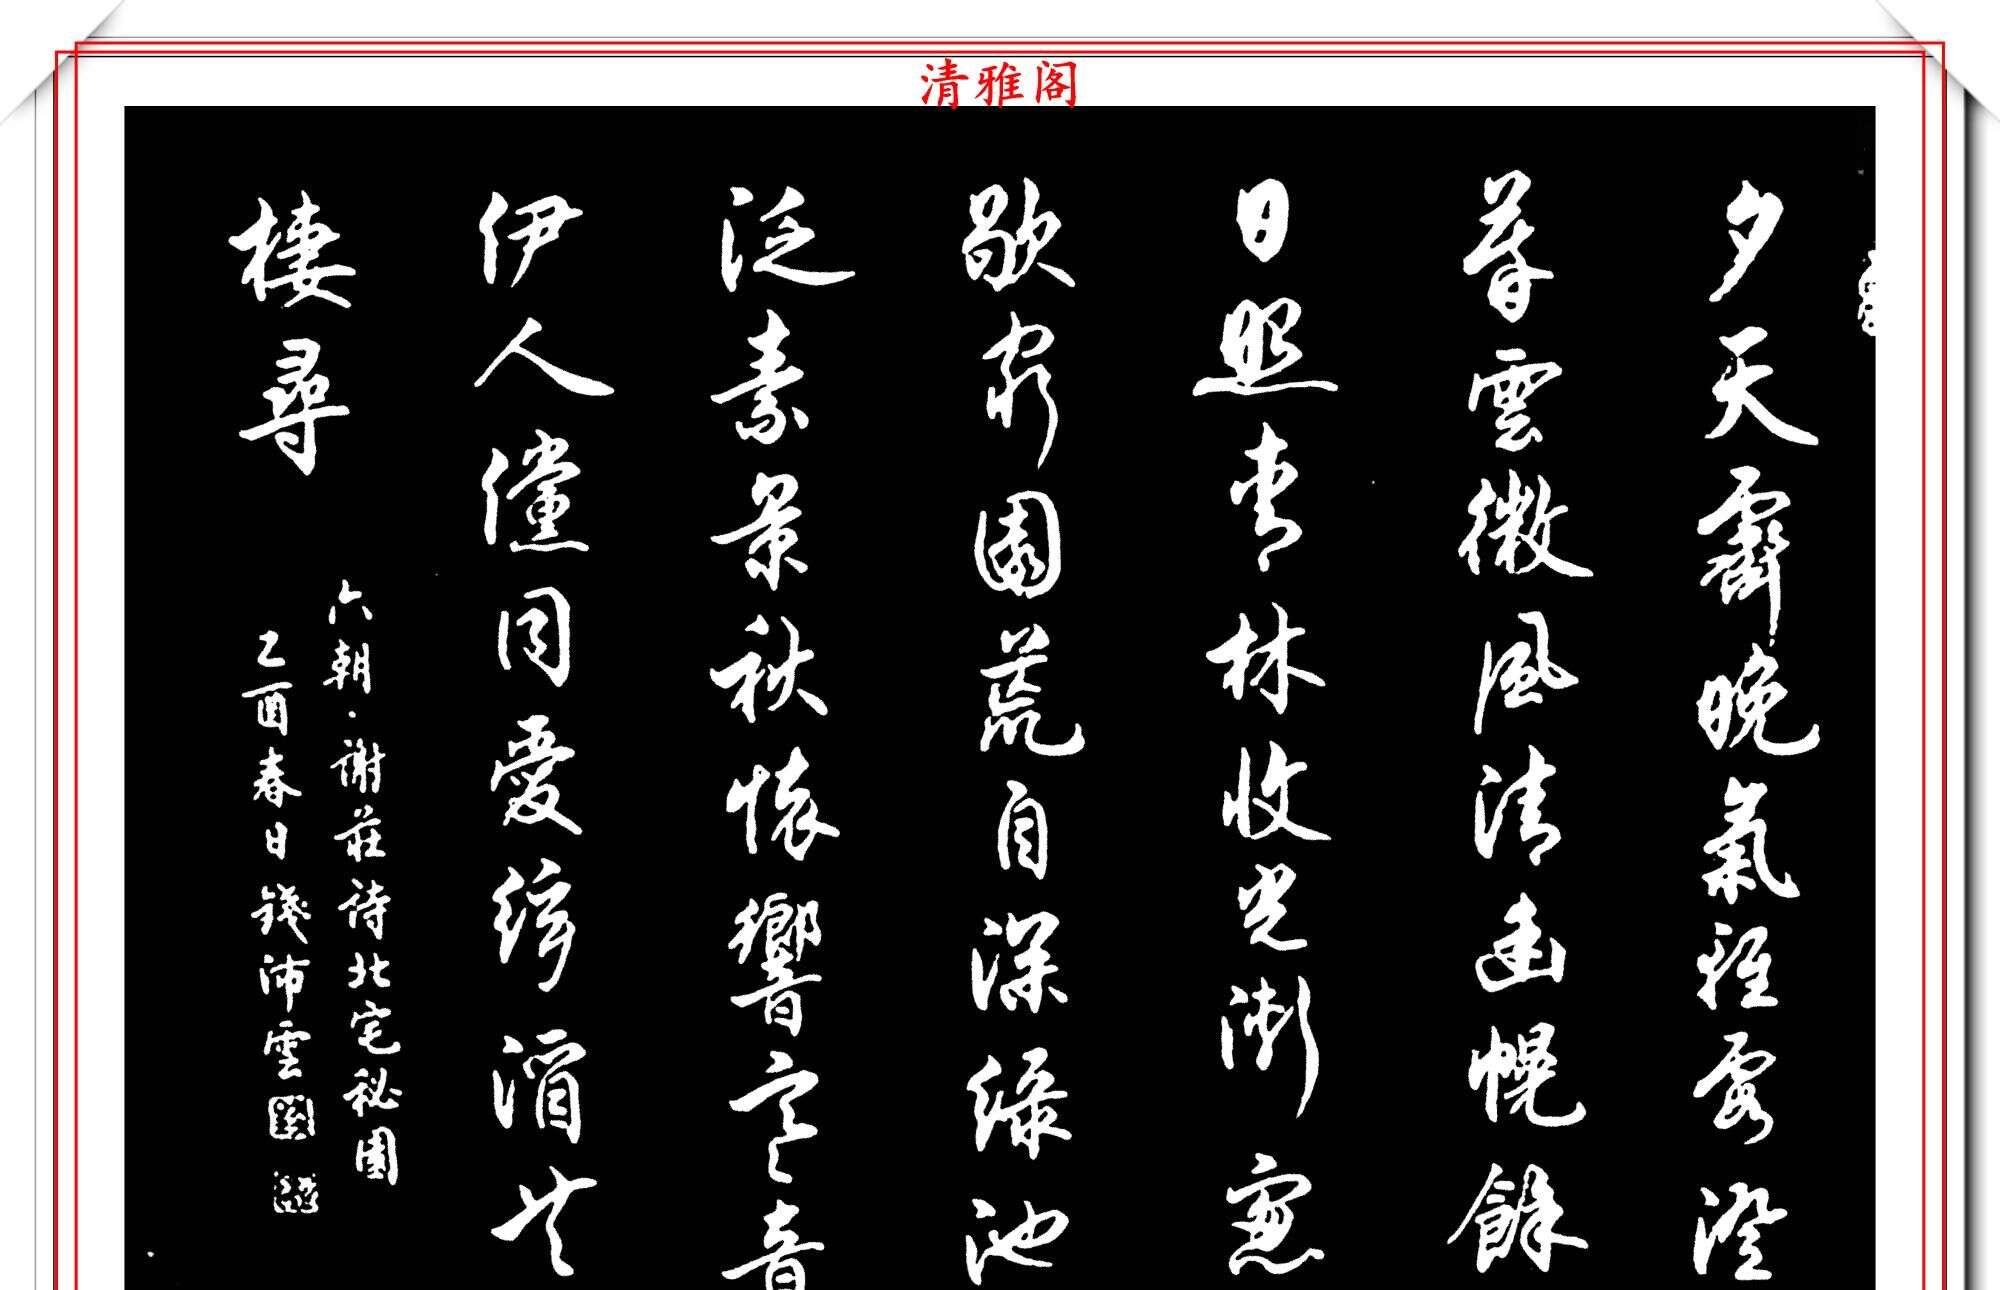 清雅阁
夕天霽晚氣輕霞澄
暮雲微風清幽幌餘
日照青林收光漸窻
歇窮園荒自深綠池
泛素景秋懷響寒音
伊人儻同愛絃酒共
棲尋
六朝·謝莊詩北宅秘園
乙酉春日錢沛雲